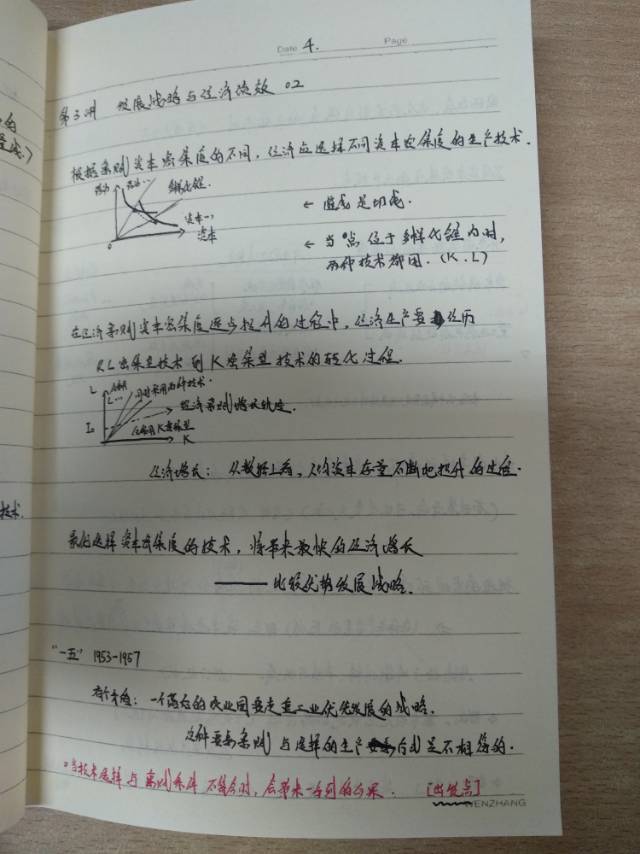 Date 4. Page
第3讲 发展战略与经济绩效 02
根据禀赋资本密集度的不同，经济应选择不同资本密集度的生产技术.
劳力
多样化锥.
资本
0
← 单位是切成.
← 当点位于多样化锥内时，
两种技术都用.（K.L）
在经济禀赋资本密集度逐步提升的过程中，经济生产要经历
从L密集型技术到K密集型技术的转化过程.
L
同时采用两种技术.
经济禀赋增长轨迹.
K密集型
K
经济增长：从数据上看，人均资本存量不断地提升的过程.
最优选择资本密集度的技术，将带来最快的经济增长
——比较优势发展战略.
"一五" 1953-1957
有个矛盾：一个落后的农业国要走重工业优先发展的战略.
这种要素禀赋与选择的生产方式是不相符的.
当技术选择与禀赋条件不符合时，会带来一系列的后果. [出发点]
WENZHANG
技术.